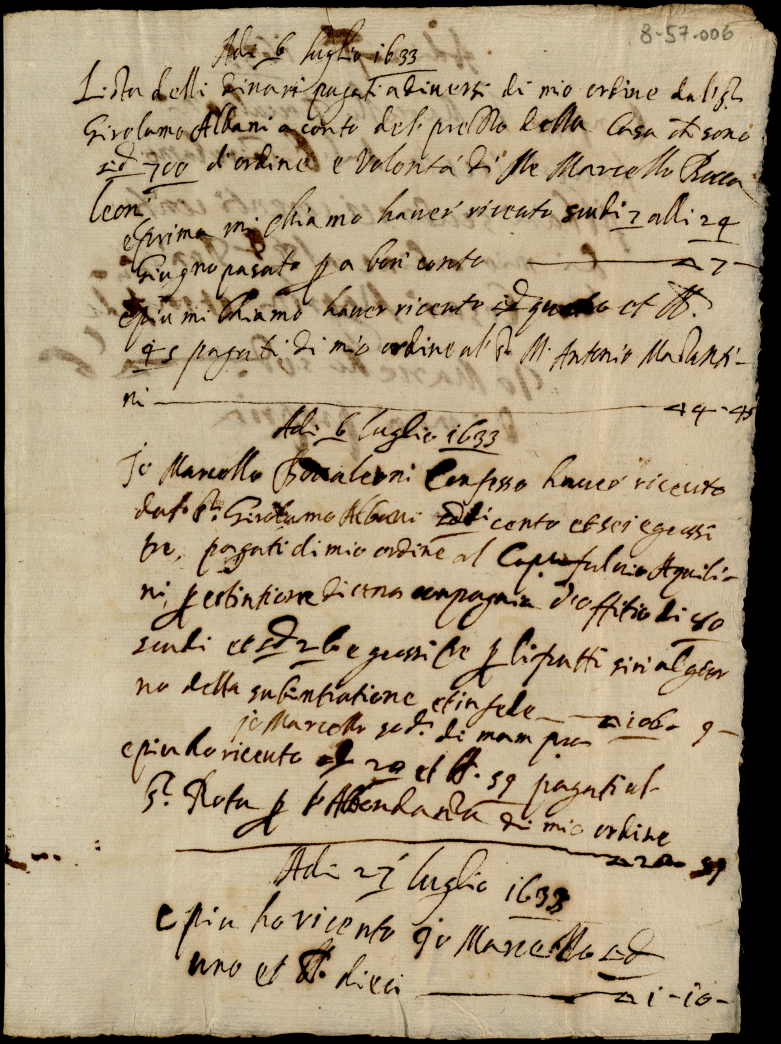 8-57-006
Adi 6 luglio 1633
Lista delli dinari pagati a diversi di mio ordine dal sr
Girolamo Albani a conto del prezzo della Casa ch sono
sd 700 d'ordine e volontà di Me Marcello Bocca
leoni
e prima mi chiamo haver riceuto scudi 7 alli 24
Giugno pasato p a bon conto — 7 —
e piu mi chiamo haver riceuto sd quatro et
45 pagati di mio ordine al sr M. Antonio
ni — 4 - 45
Adi 6 luglio 1633
Io Marcello Bocaleoni Confesso haver riceuto
dal sr Girolamo Albani sdi cento et sei e grossi
tre, pagati di mio ordine al Capn fulvio Aquili-
ni, p estintione di una compagnia d'offitio di 80
scudi et sd 26 e grossi tre p li frutti sin al gior
no della et in fede — 106 - 9 —
io Marcello sodo di man pro
e piu ho riceuto sd 20 et 59 pagati al
sr Rota p di mio ordine
— 20 - 59
Adi 27 luglio 1633
e piu ho riceuto io Marcello sd
uno et dieci — 1 - 10 -